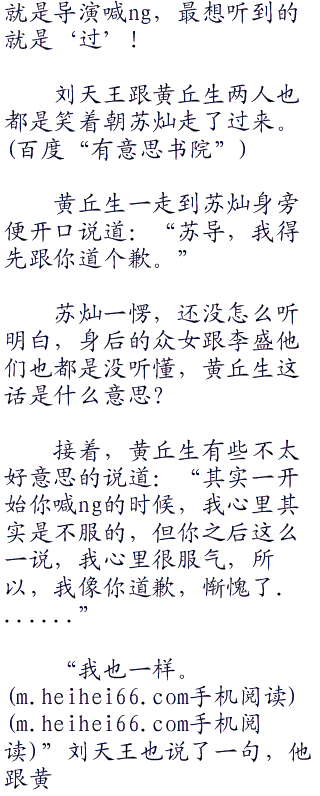 就是导演喊ng，最想听到的
就是‘过’！
刘天王跟黄丘生两人也
都是笑着朝苏灿走了过来。
(百度“有意思书院”)
黄丘生一走到苏灿身旁
便开口说道：“苏导，我得
先跟你道个歉。”
苏灿一愣，还没怎么听
明白，身后的众女跟李盛他
们也都是没听懂，黄丘生这
话是什么意思?
接着，黄丘生有些不太
好意思的说道：“其实一开
始你喊ng的时候，我心里其
实是不服的，但你之后这么
一说，我心里很服气，所
以，我像你道歉，惭愧了．
......”
“我也一样。
(m.heihei66.com手机阅读)
(m.heihei66.com手机阅
读)”刘天王也说了一句，他
跟黄